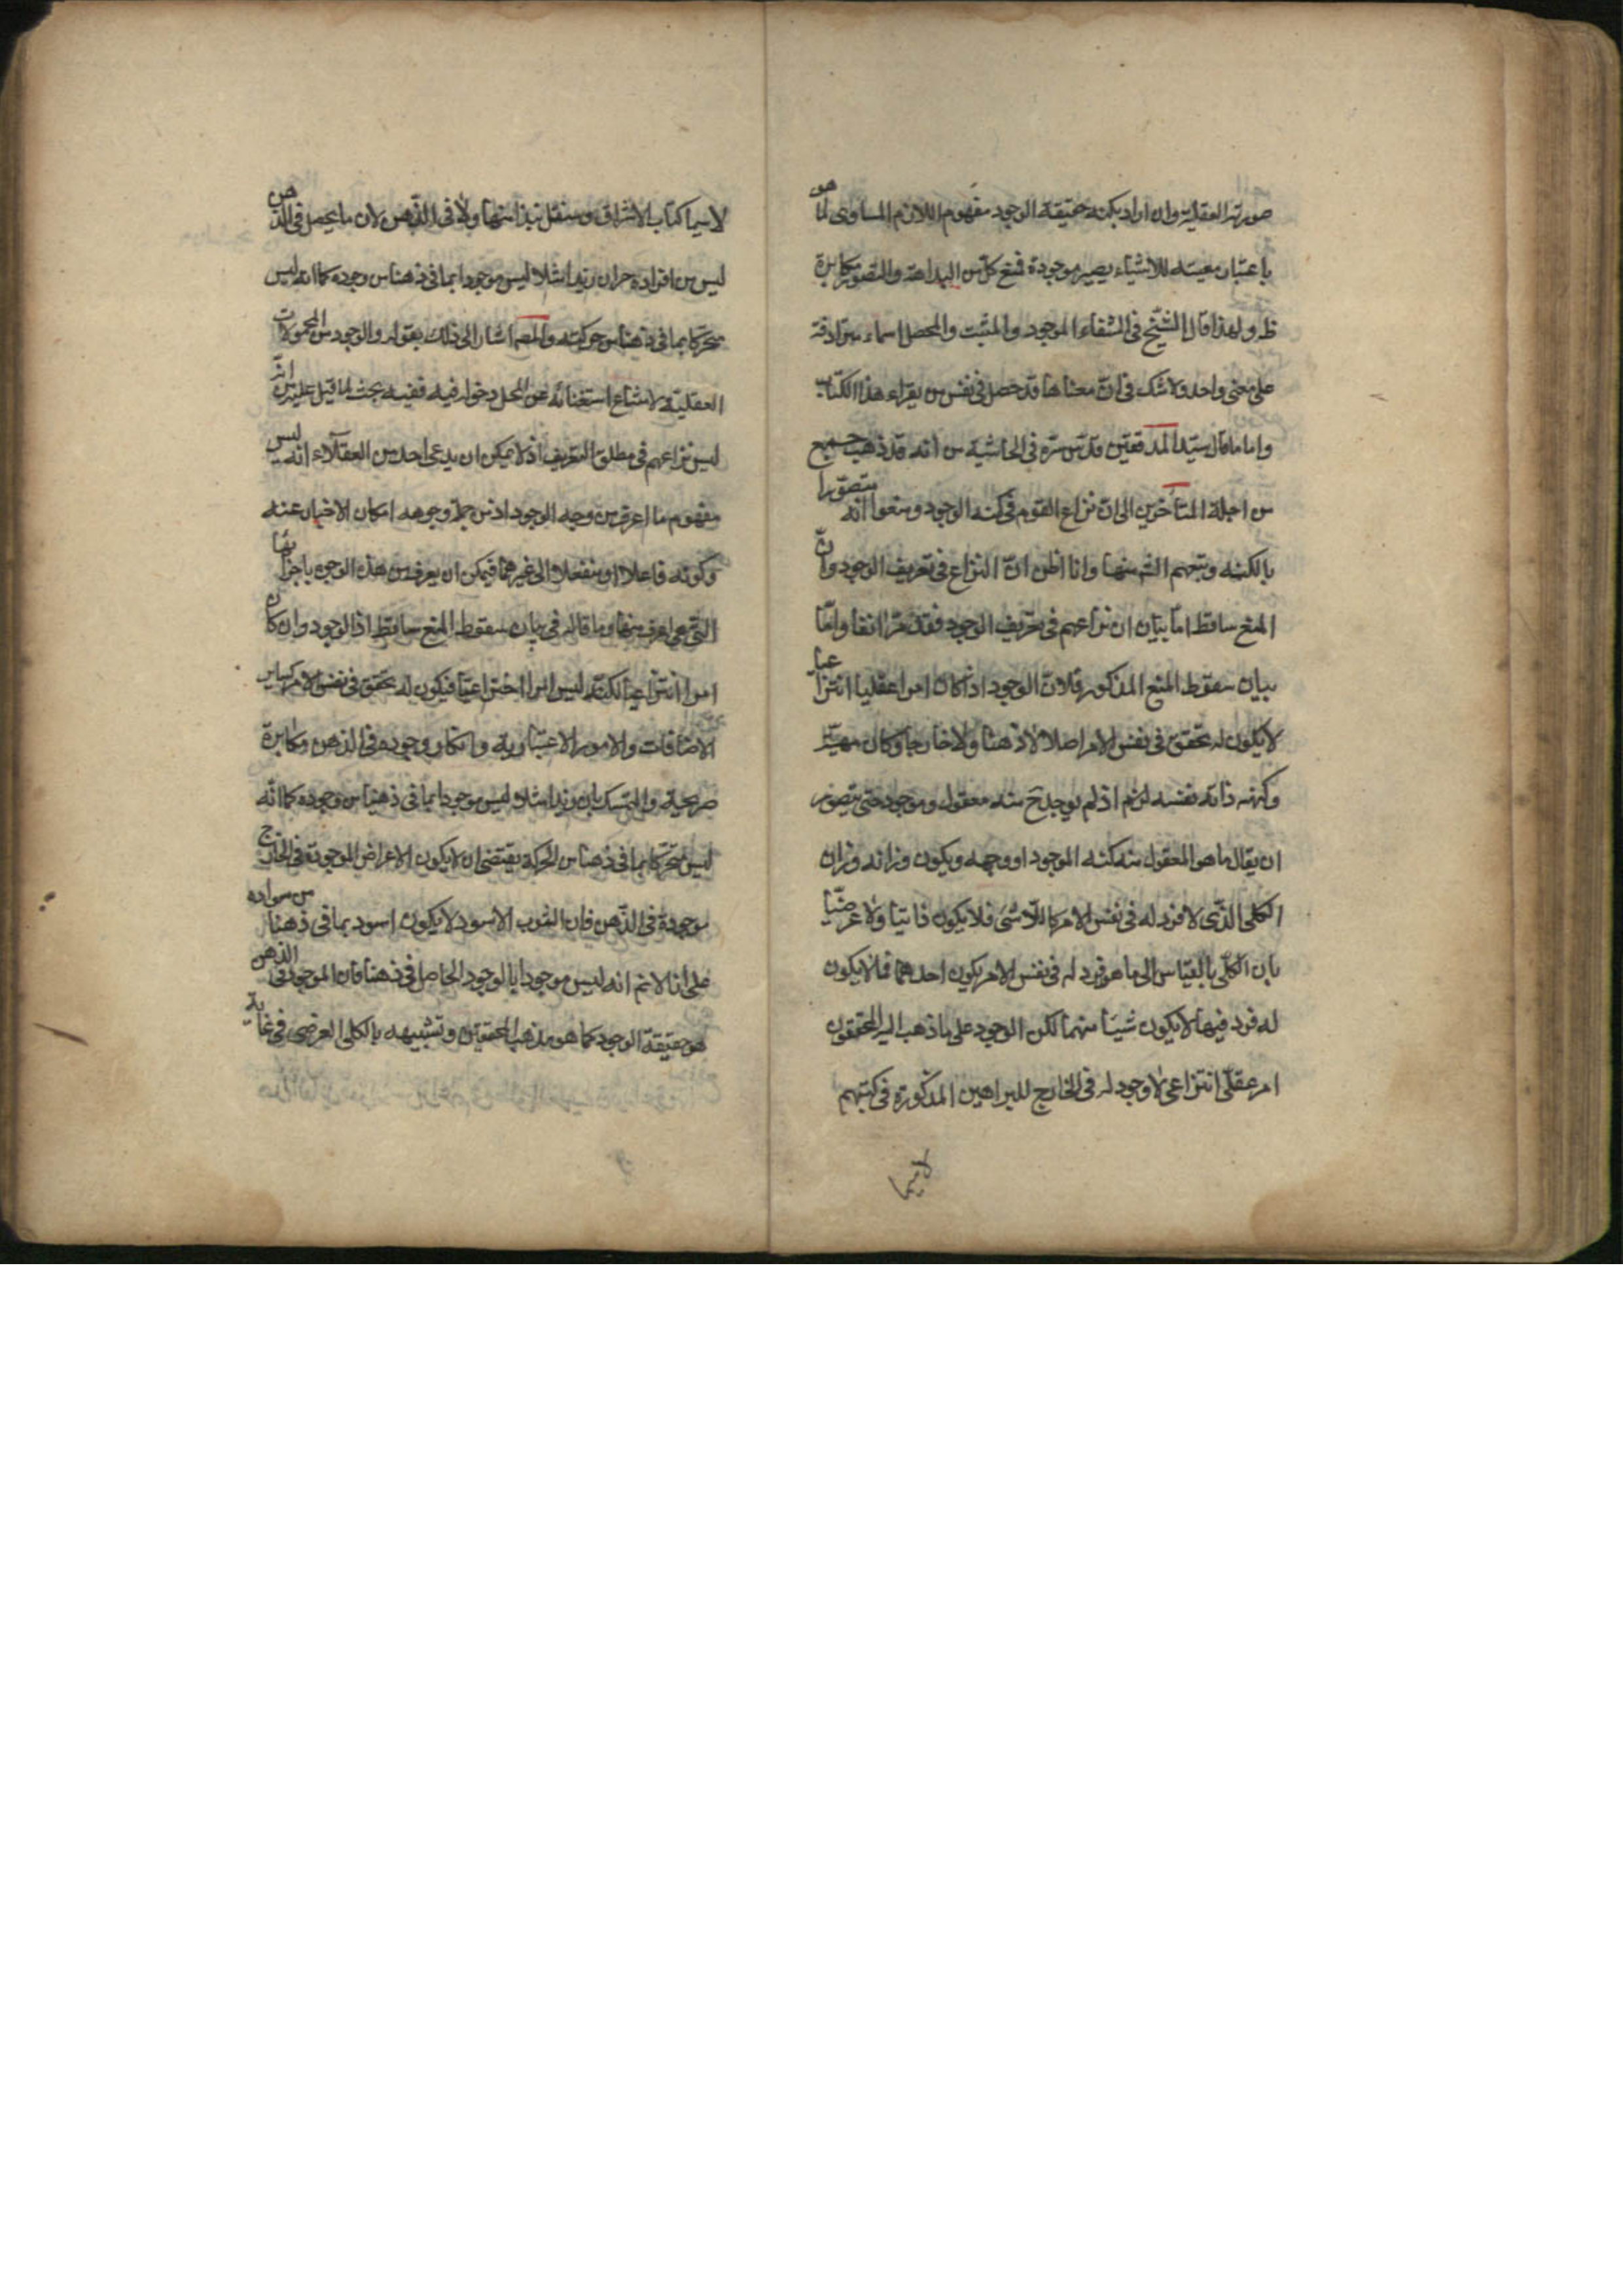 صورته العقلية وان اراد بكنه حقيقة الوجود مفهوم اللازم المساوى لما هو
باعتبار معيته للاشياء يصير موجودة فمنع كل من البداهة والتصور مكابرة
ظ ولهذا قال الشيخ فى الشفاء الموجود والمثبت والمحصل اسماء مترادفة
على معنى واحد ولا شك فى ان معناها قد حصل فى نفس من يقراء هذا الكتاب
واما ما قال سيد المدققين قدس سره فى الحاشية من انه قد ذهب جميع
من اجلة المتأخرين الى ان نزاع القوم فى كنه الوجود ومنعوا انه متصورا
بالكنه وتبعهم الش منها وانا اظن ان النزاع فى تعريف الوجود وان
المنع ساقط اما بيان ان نزاعهم فى تعريف الوجود فقد مر انفا واما
بيان سقوط المنع المذكور فلان الوجود اذا كان امرا عقليا انتزاعيا
لا يكون له تحقق فى نفس الامر اصلا لا ذهنا ولا خارجا وكان مهيته
وكنهه ذاته نفسه لزم اذ لم يوجد ح منه معقول وموجود حتى يتصور
ان يقال ما هو المعقول منه كنه الموجود او وجهه ويكون وزانه وزان
الكلى الذى لا فرد له فى نفس الامر كاللاشئ فلا يكون ذاتيا ولا عرضيا
بان الكلى بالقياس الى ما هو فرد له فى نفس الامر يكون احدهما فما لا يكون
له فرد فيها لا يكون شيئا منهما لكن الوجود على ما ذهب اليه المحققون
امر عقلى انتزاعى لا وجود له فى الخارج للبراهين المذكورة فى كتبهم
لا سيما
لا سيما كتاب الاشراق وسننقل نبذا منها ولا فى الذهن لان ما يحصل فى الذهن
ليس من افراده حيث ان زيدا مثلا ليس موجودا بما فى ذهننا من وجوده كما انه ليس
متحركا بما فى ذهننا من حركته والمصم اشار الى ذلك بقوله والوجود من المحمولات
العقلية لامتناع استغنائه عن المحل وحصوله فيه ففيه بحث لما قيل عليه من انه
ليس نزاعهم فى مطلق التعريف اذ لا يمكن ان يدعى احد من العقلاء انه ليس
مفهوم ما اعرف من وجه الوجود اذ من جملة وجوهه امكان الاخبار عنه
وكونه فاعلا او منفعلا الى غيرهما فيمكن ان يعرف من هذه الوجوه باجزائها
التى هى اعرف منها وما قاله فى بيان سقوط المنع ساقط اذ الوجود وان كان
امرا انتزاعيا لكنه ليس امرا اختراعيا فيكون له تحقق فى نفس الامر كساير
الاضافات والامور الاعتبارية وانكار وجوده فى الذهن مكابرة
صريحية والتمسك بان زيدا مثلا ليس موجودا بما فى ذهننا من وجوده كما انه
ليس متحركا بما فى ذهننا من الحركة يقتضى ان لا يكون الاعراض الموجودة فى الخارج
موجودة فى الذهن فان الثوب الاسود لا يكون اسود بما فى ذهننا من سواده
على انا لا نم انه ليس موجودا بالوجود الحاصل فى ذهننا فان الموجود فى الذهن
هو حقيقة الوجود كما هو مذهب المحققين وتشبيهه بالكلى العرضى فى غاية